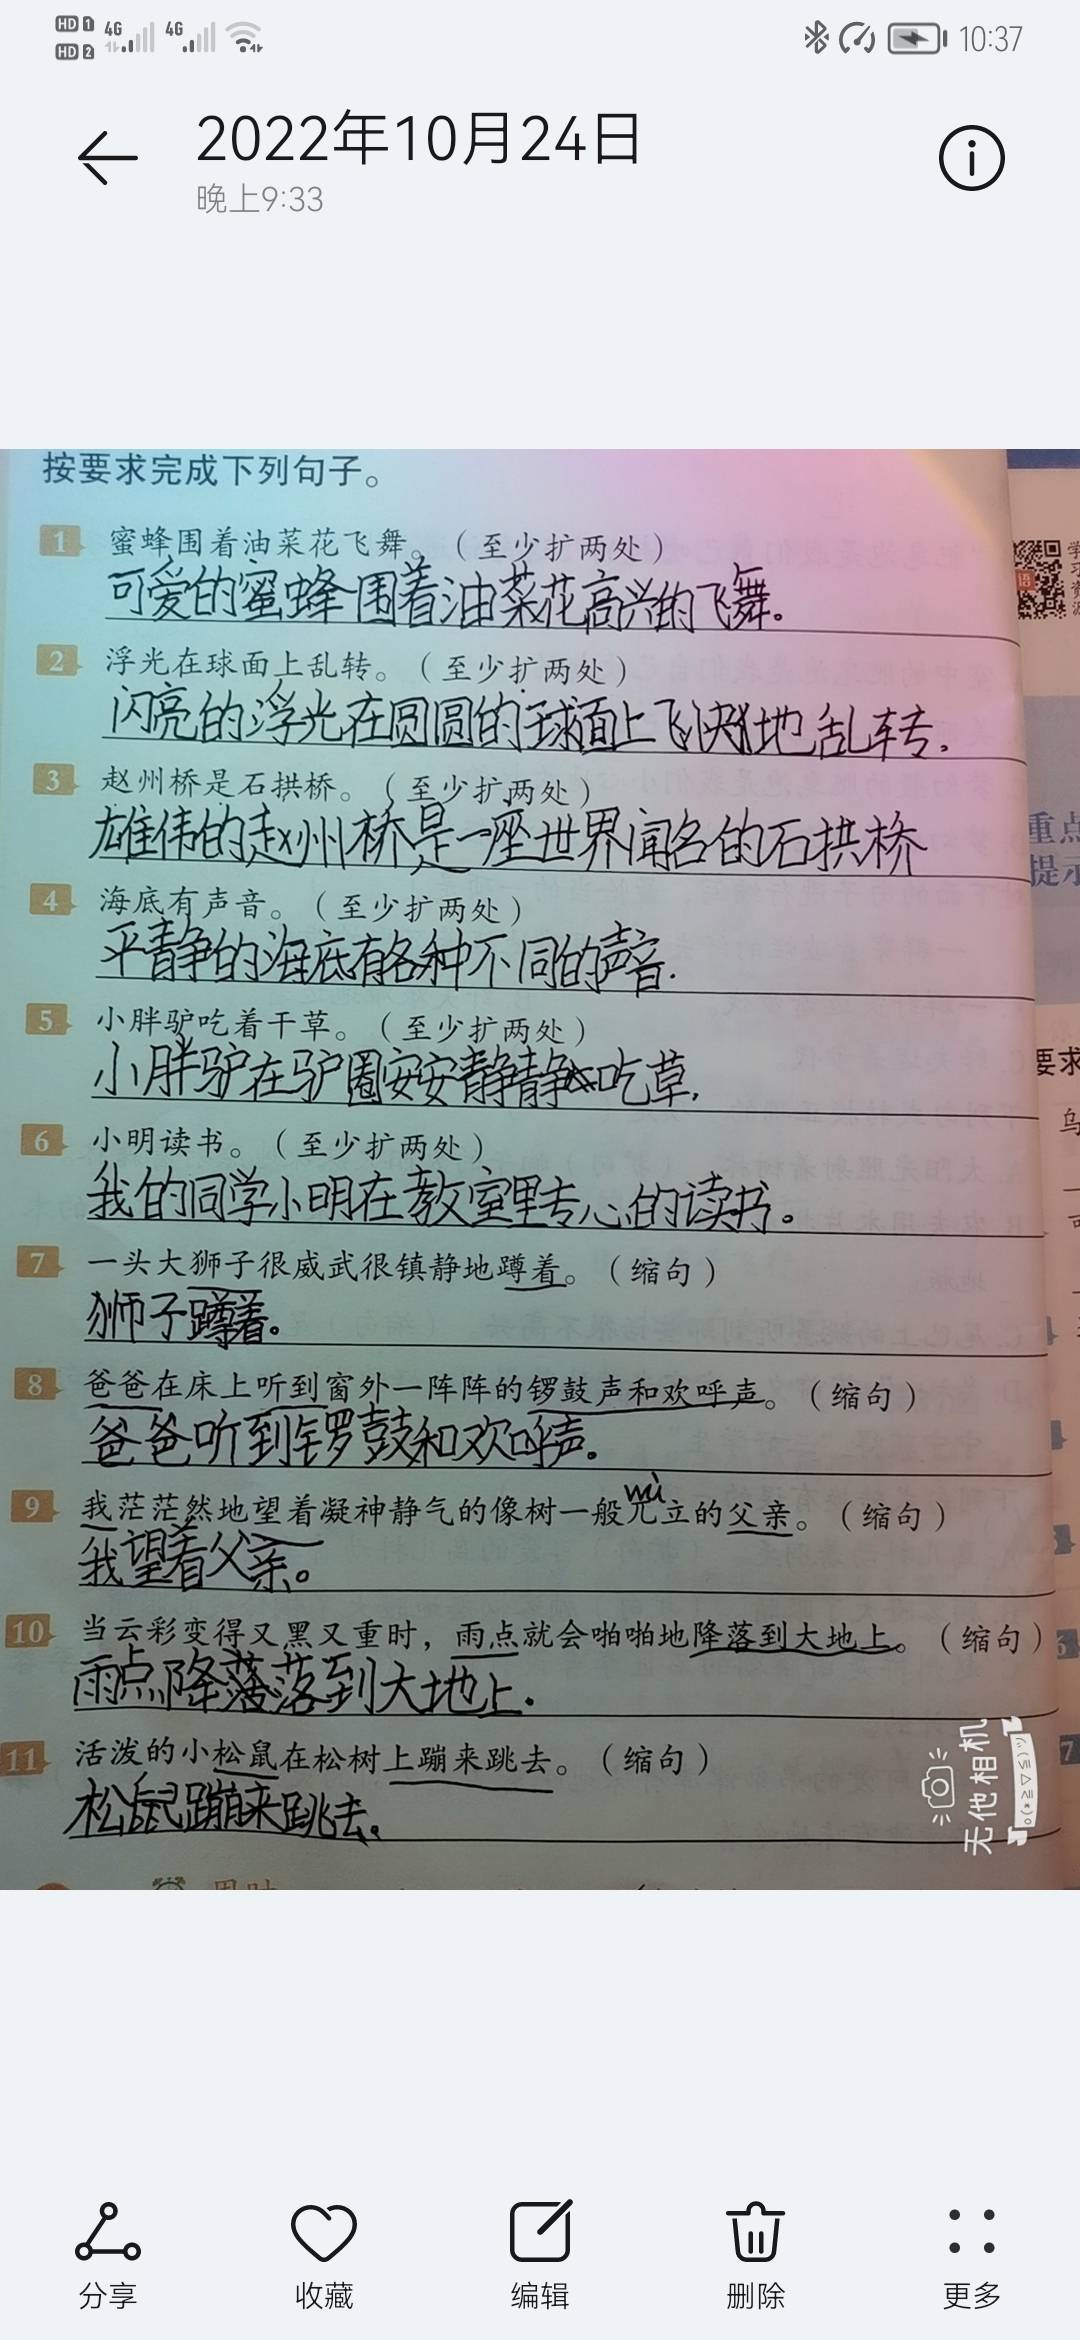 HD 1 4G 4G
HD 2
10:37
2022年10月24日
晚上9:33
按要求完成下列句子。
1 蜜蜂围着油菜花飞舞。（至少扩两处）
可爱的蜜蜂围着油菜花高兴的飞舞。
2 浮光在球面上乱转。（至少扩两处）
闪亮的浮光在圆圆的球面上飞快地乱转.
3 赵州桥是石拱桥。（至少扩两处）
雄伟的赵州桥是一座世界闻名的石拱桥
4 海底有声音。（至少扩两处）
平静的海底有各种不同的声音.
5 小胖驴吃着干草。（至少扩两处）
小胖驴在驴圈安安静静吃草.
6 小明读书。（至少扩两处）
我的同学小明在教室里专心的读书。
7 一头大狮子很威武很镇静地蹲着。（缩句）
狮子蹲着。
8 爸爸在床上听到窗外一阵阵的锣鼓声和欢呼声。（缩句）
爸爸听到锣鼓和欢呼声。
wù
9 我茫茫然地望着凝神静气的像树一般兀立的父亲。（缩句）
我望着父亲。
10 当云彩变得又黑又重时，雨点就会啪啪地降落到大地上。（缩句）
雨点降落落到大地上.
11 活泼的小松鼠在松树上蹦来跳去。（缩句）
松鼠蹦来跳去。
学习资源
语
重点
提示
要求
无他相机
分享 收藏 编辑 删除 更多